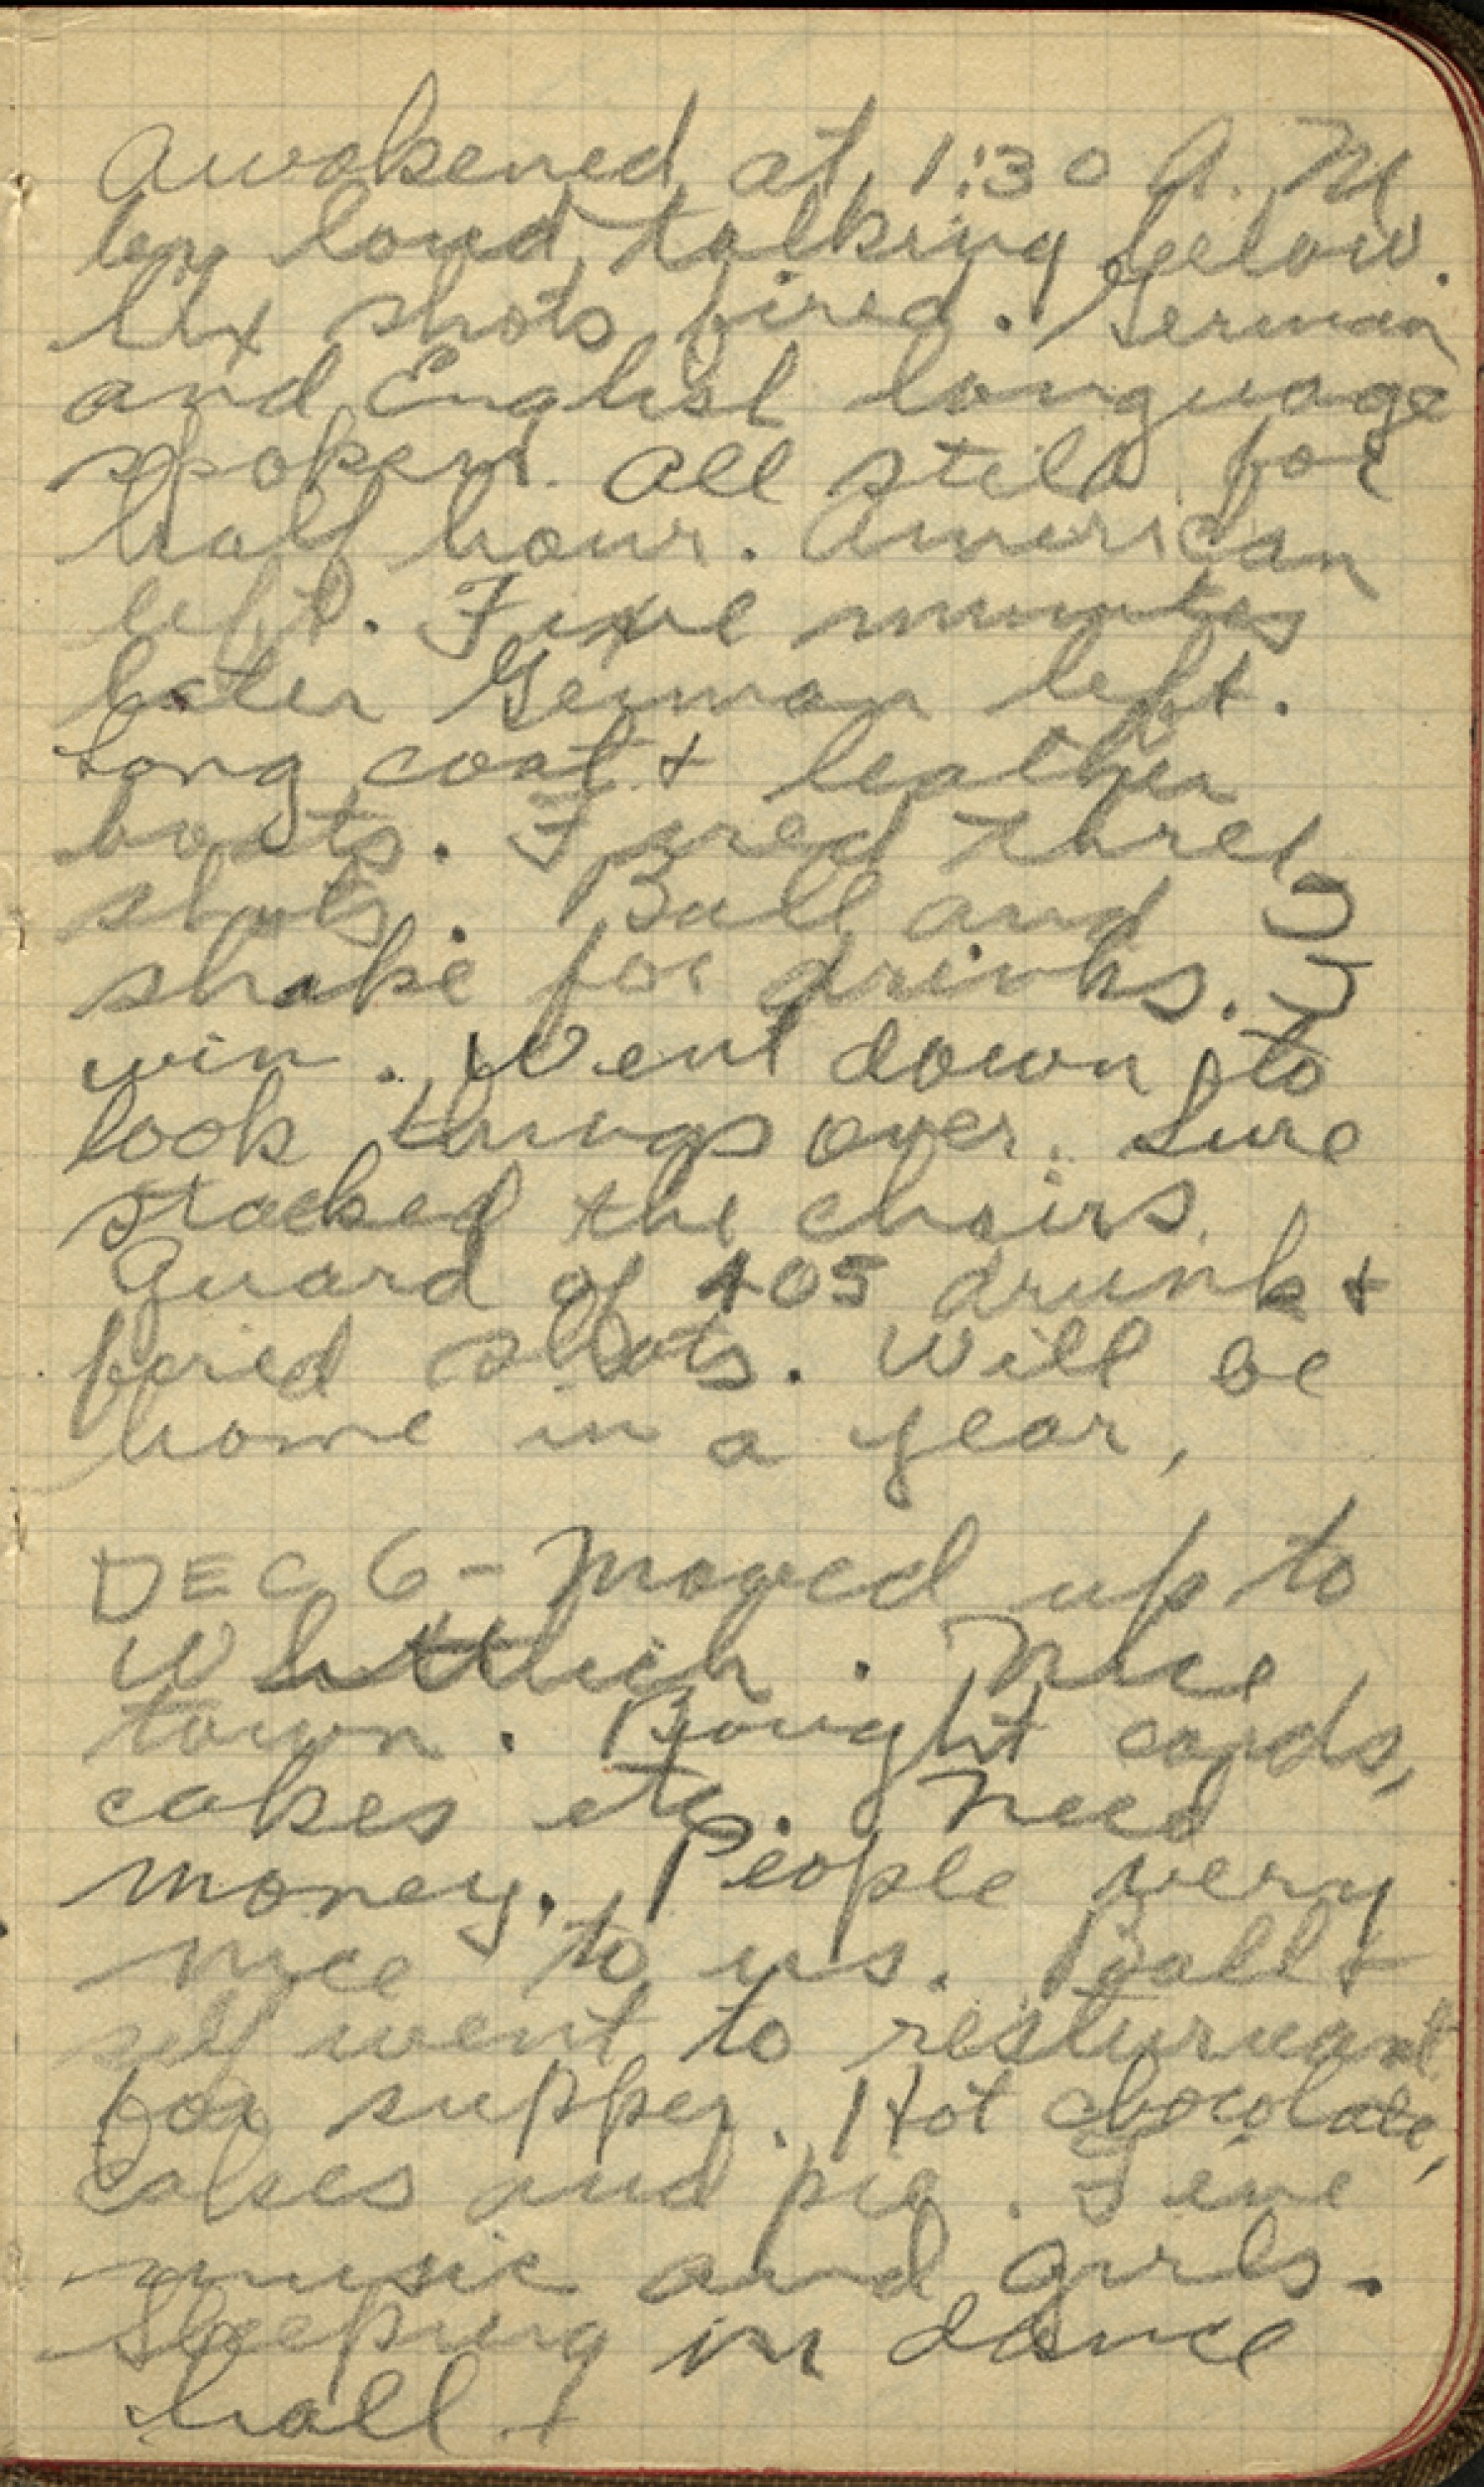 Awakened at 1:30 A. M
by loud talking below.
Six shots fired. German
and English language
spoken. All still for
half hour. American
left. Five minutes
later German left.
Long coat & leather
boots. Fired three
shots. Ball and I
shake for drinks. I
win. Went down to
look things over. Sure
stacked the chairs.
Guard of 405 drunk &
fired shots. Will be
home in a year,
DEC 6 - Moved up to
Whittlich. Nice
town. Bought cards,
cakes etc. Need
money. People very
nice to us. Ball &
self went to resturuant
for supper. Hot chocolate,
cakes and pie. Fine
music and girls.
Sleeping in dance
hall.